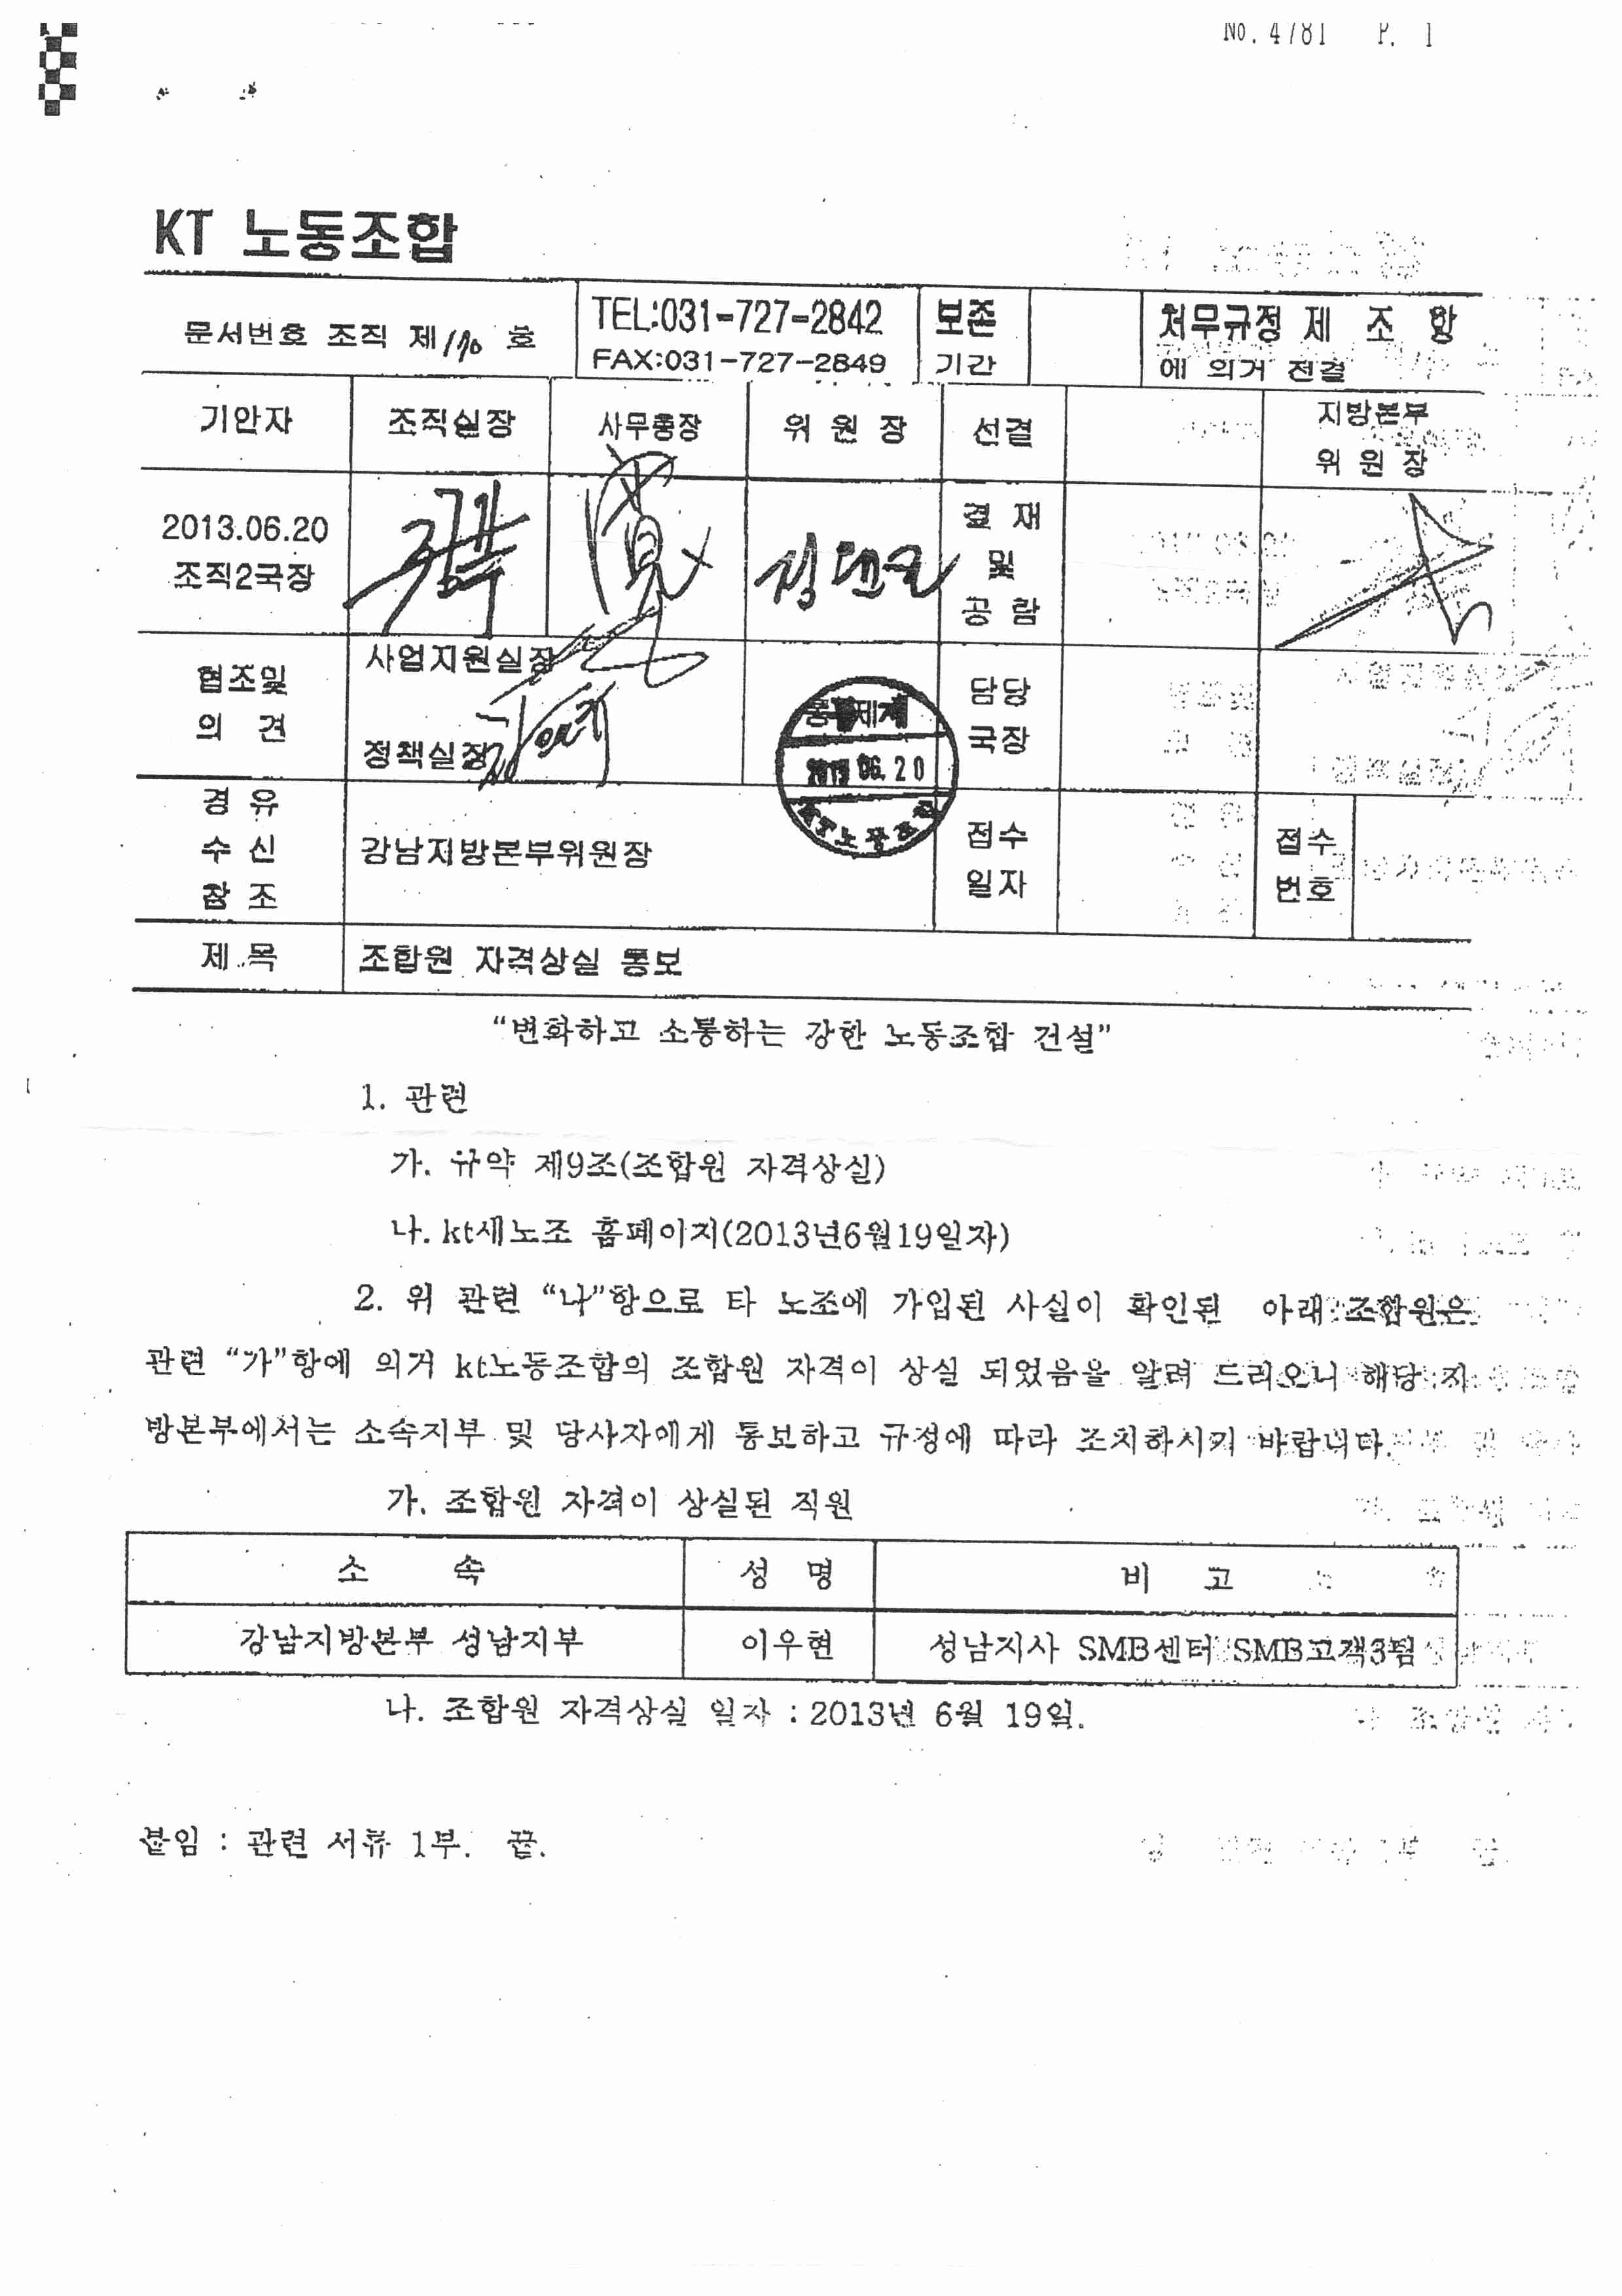 No. 4781 P. 1
KT 노동조합
문서번호 조직 제 호
TEL:031-727-2842
FAX:031-727-2849
보존
기간
처무규정 제 조 항
에 의거 전결
기안자
조직실장
사무총장
위 원 장
선결
지방본부
위 원 장
2013.06.20
조직2국장
결 재
및
공 람
협조및
의 견
사업지원실장
정책실장
담당
국장
2013 06. 20
KT노동조합
경 유
수 신
참 조
강남지방본부위원장
접수
일자
접수
번호
제 목
조합원 자격상실 통보
“변화하고 소통하는 강한 노동조합 건설”
1. 관련
가. 규약 제9조(조합원 자격상실)
나. kt새노조 홈페이지(2013년6월19일자)
2. 위 관련 “나”항으로 타 노조에 가입된 사실이 확인된 아래 조합원은
관련 “가”항에 의거 kt노동조합의 조합원 자격이 상실 되었음을 알려 드리오니 해당 지
방본부에서는 소속지부 및 당사자에게 통보하고 규정에 따라 조치하시기 바랍니다.
가. 조합원 자격이 상실된 직원
소 속
성 명
비 고
강남지방본부 성남지부
이우현
성남지사 SMB센터 SMB고객3팀
나. 조합원 자격상실 일자 : 2013년 6월 19일.
붙임 : 관련 서류 1부. 끝.